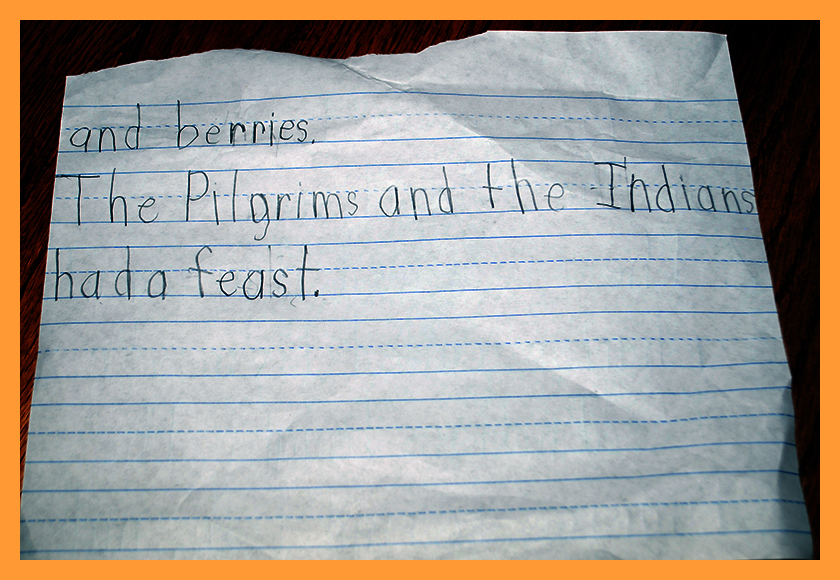 and berries.
The Pilgrims and the Indians
had a feast.